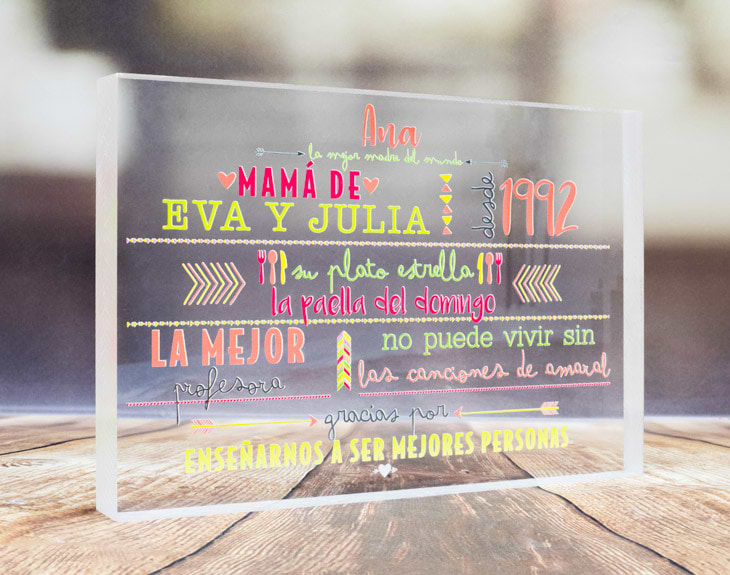 Ana
la mejor madre del mundo
MAMÁ DE
EVA Y JULIA
desde
1992
su plato estrella
la paella del domingo
LA MEJOR
profesora
no puede vivir sin
las canciones de amaral
gracias por
ENSEÑARNOS A SER MEJORES PERSONAS